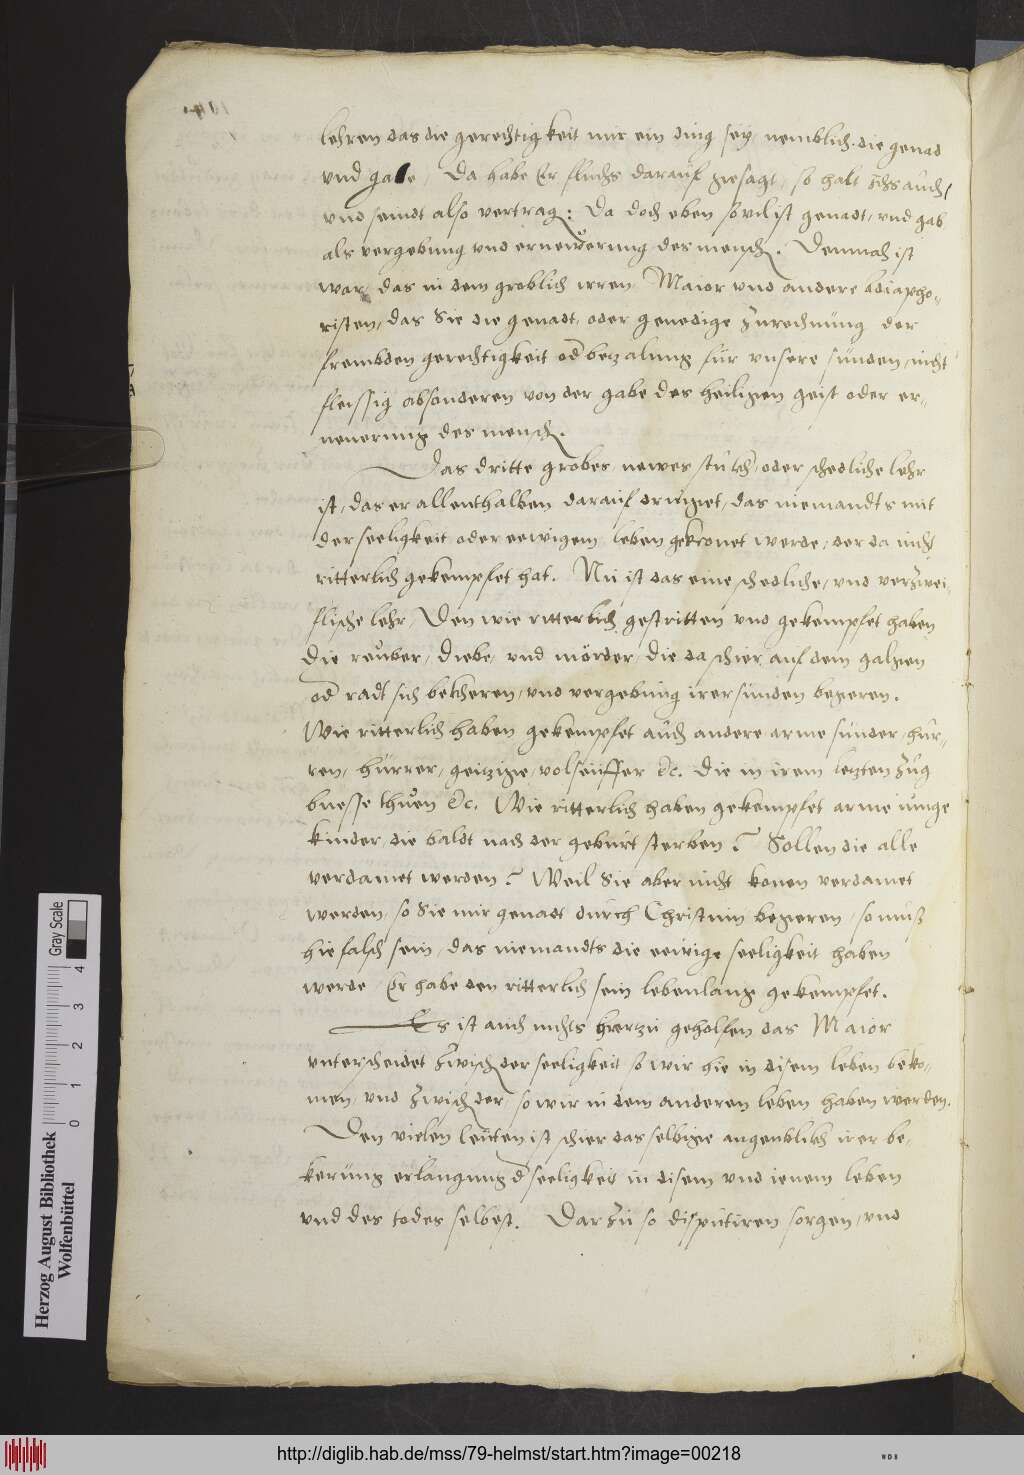 lehren das die gerechtigkeit nur ein ding seӱ, nemblich die genad
vnd gabe, Da habe Er fluchs darauf gesagt, so halt Ichs auch,
vnd seindt also vertrag: Da doch eben so vil ist genadt, vnd gab
als vergebung vnd ernewerung des mensch. Demnach ist
war, das in dem groblich irren Maior vnd andere Adiapho-
risten, das Sie die genadt, oder genedige Zurechnung der
frembden gerechtigkeit od bezalung für vnsere sünden, nicht
fleissig absonderen von der gabe des heiligen geist oder er-
neuerung des mensch.
Das dritte grobes newes stuckh, oder schedliche lehr
ist, das er allenthalben darauf dringet, das niemandts mit
der seeligkeit oder eewigem leben gekronet werde, der da nicht
ritterlich gekempfet hat. Nu ist das eine schedliche, vnd verzwei-
flische lehr, Den wie ritterlich gestritten vnd gekempfet haben
die reuber, diebe, vnd mörder, die da schier auf dem galgen
od radt sich bekheren, vnd vergebung irer sünden begeren.
Wie ritterlich haben gekempfet auch andere arme sünder, hur-
ren, hurrer, geizige, volseuffer &c. die in irem letzten Zug
buesse thuen &c. Wie ritterlich haben gekempfet arme iunge
kinder, die baldt nach der geburt sterben? Sollen die alle
verdamet werden? Weil Sie aber nicht konen verdamet
werden, so Sie nur genadt durch Christum begeren, so muß
hie falsch sein, das niemandts die eewige seeligkeit haben
werde, Er habe den ritterlich sein lebenlang gekempfet.
Es ist auch nichts hierzu geholfen das Maior
vnterscheidet Zwisch der seeligkeit so wir hie in disem leben beko-
men, vnd Zwisch der, so wir in dem anderen leben haben werden.
Den vielen leuten ist schier das selbige augenblickh irer be-
kerung erlangung d seeligkeit in disem vnd ienem leben
vnd des todes selbest. Dar Zu so disputiren sorgen, vnd
Herzog August Bibliothek
Wolfenbüttel
Gray Scale
0 1 2 3 4
http://diglib.hab.de/mss/79-helmst/start.htm?image=00218